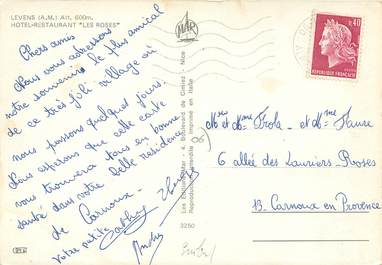 LEVENS (A.M.) Alt. 600m.
HOTEL-RESTAURANT "LES ROSES"
Chers amis
Nous vous adressons
notre souvenir le plus amical
de ce très joli village où
nous passons quelques jours.
Nous espérons que cette carte
vous trouvera tous en bonne
santé dans notre belle résidence
de Carnoux.
Votre petite Cathy
MAR
Les Editions Mar - 4, Boulevard de Cimiez - Nice
Reproduction interdite Imprimé en Italie
3250
0,40
REPUBLIQUE FRANÇAISE
et Mme Faure
6 allée des Lauriers-Roses
13. Carnoux en Provence